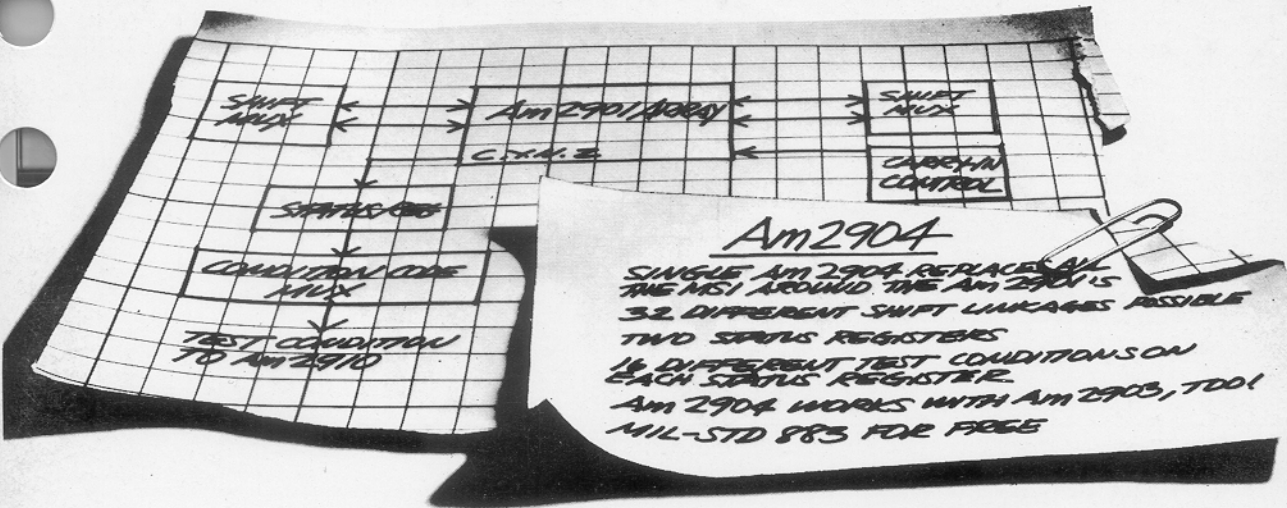 SHIFT
MUX
Am2901 ARRAY
C.Y.N.Z
SHIFT
MUX
CARRY-IN
CONTROL
STATUS REG
CONDITION CODE
MUX
TEST CONDITION
TO Am2910
Am2904
SINGLE Am2904 REPLACES ALL
THE MSI AROUND THE Am2901'S
32 DIFFERENT SHIFT LINKAGES POSSIBLE
TWO STATUS REGISTERS
16 DIFFERENT TEST CONDITIONS ON
EACH STATUS REGISTER
Am2904 WORKS WITH Am2903, TOO!
MIL-STD 883 FOR FREE